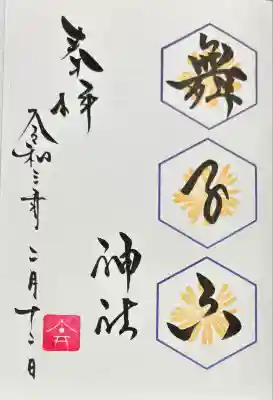 舞子六
神社
奉拝
令和三年二月十二日